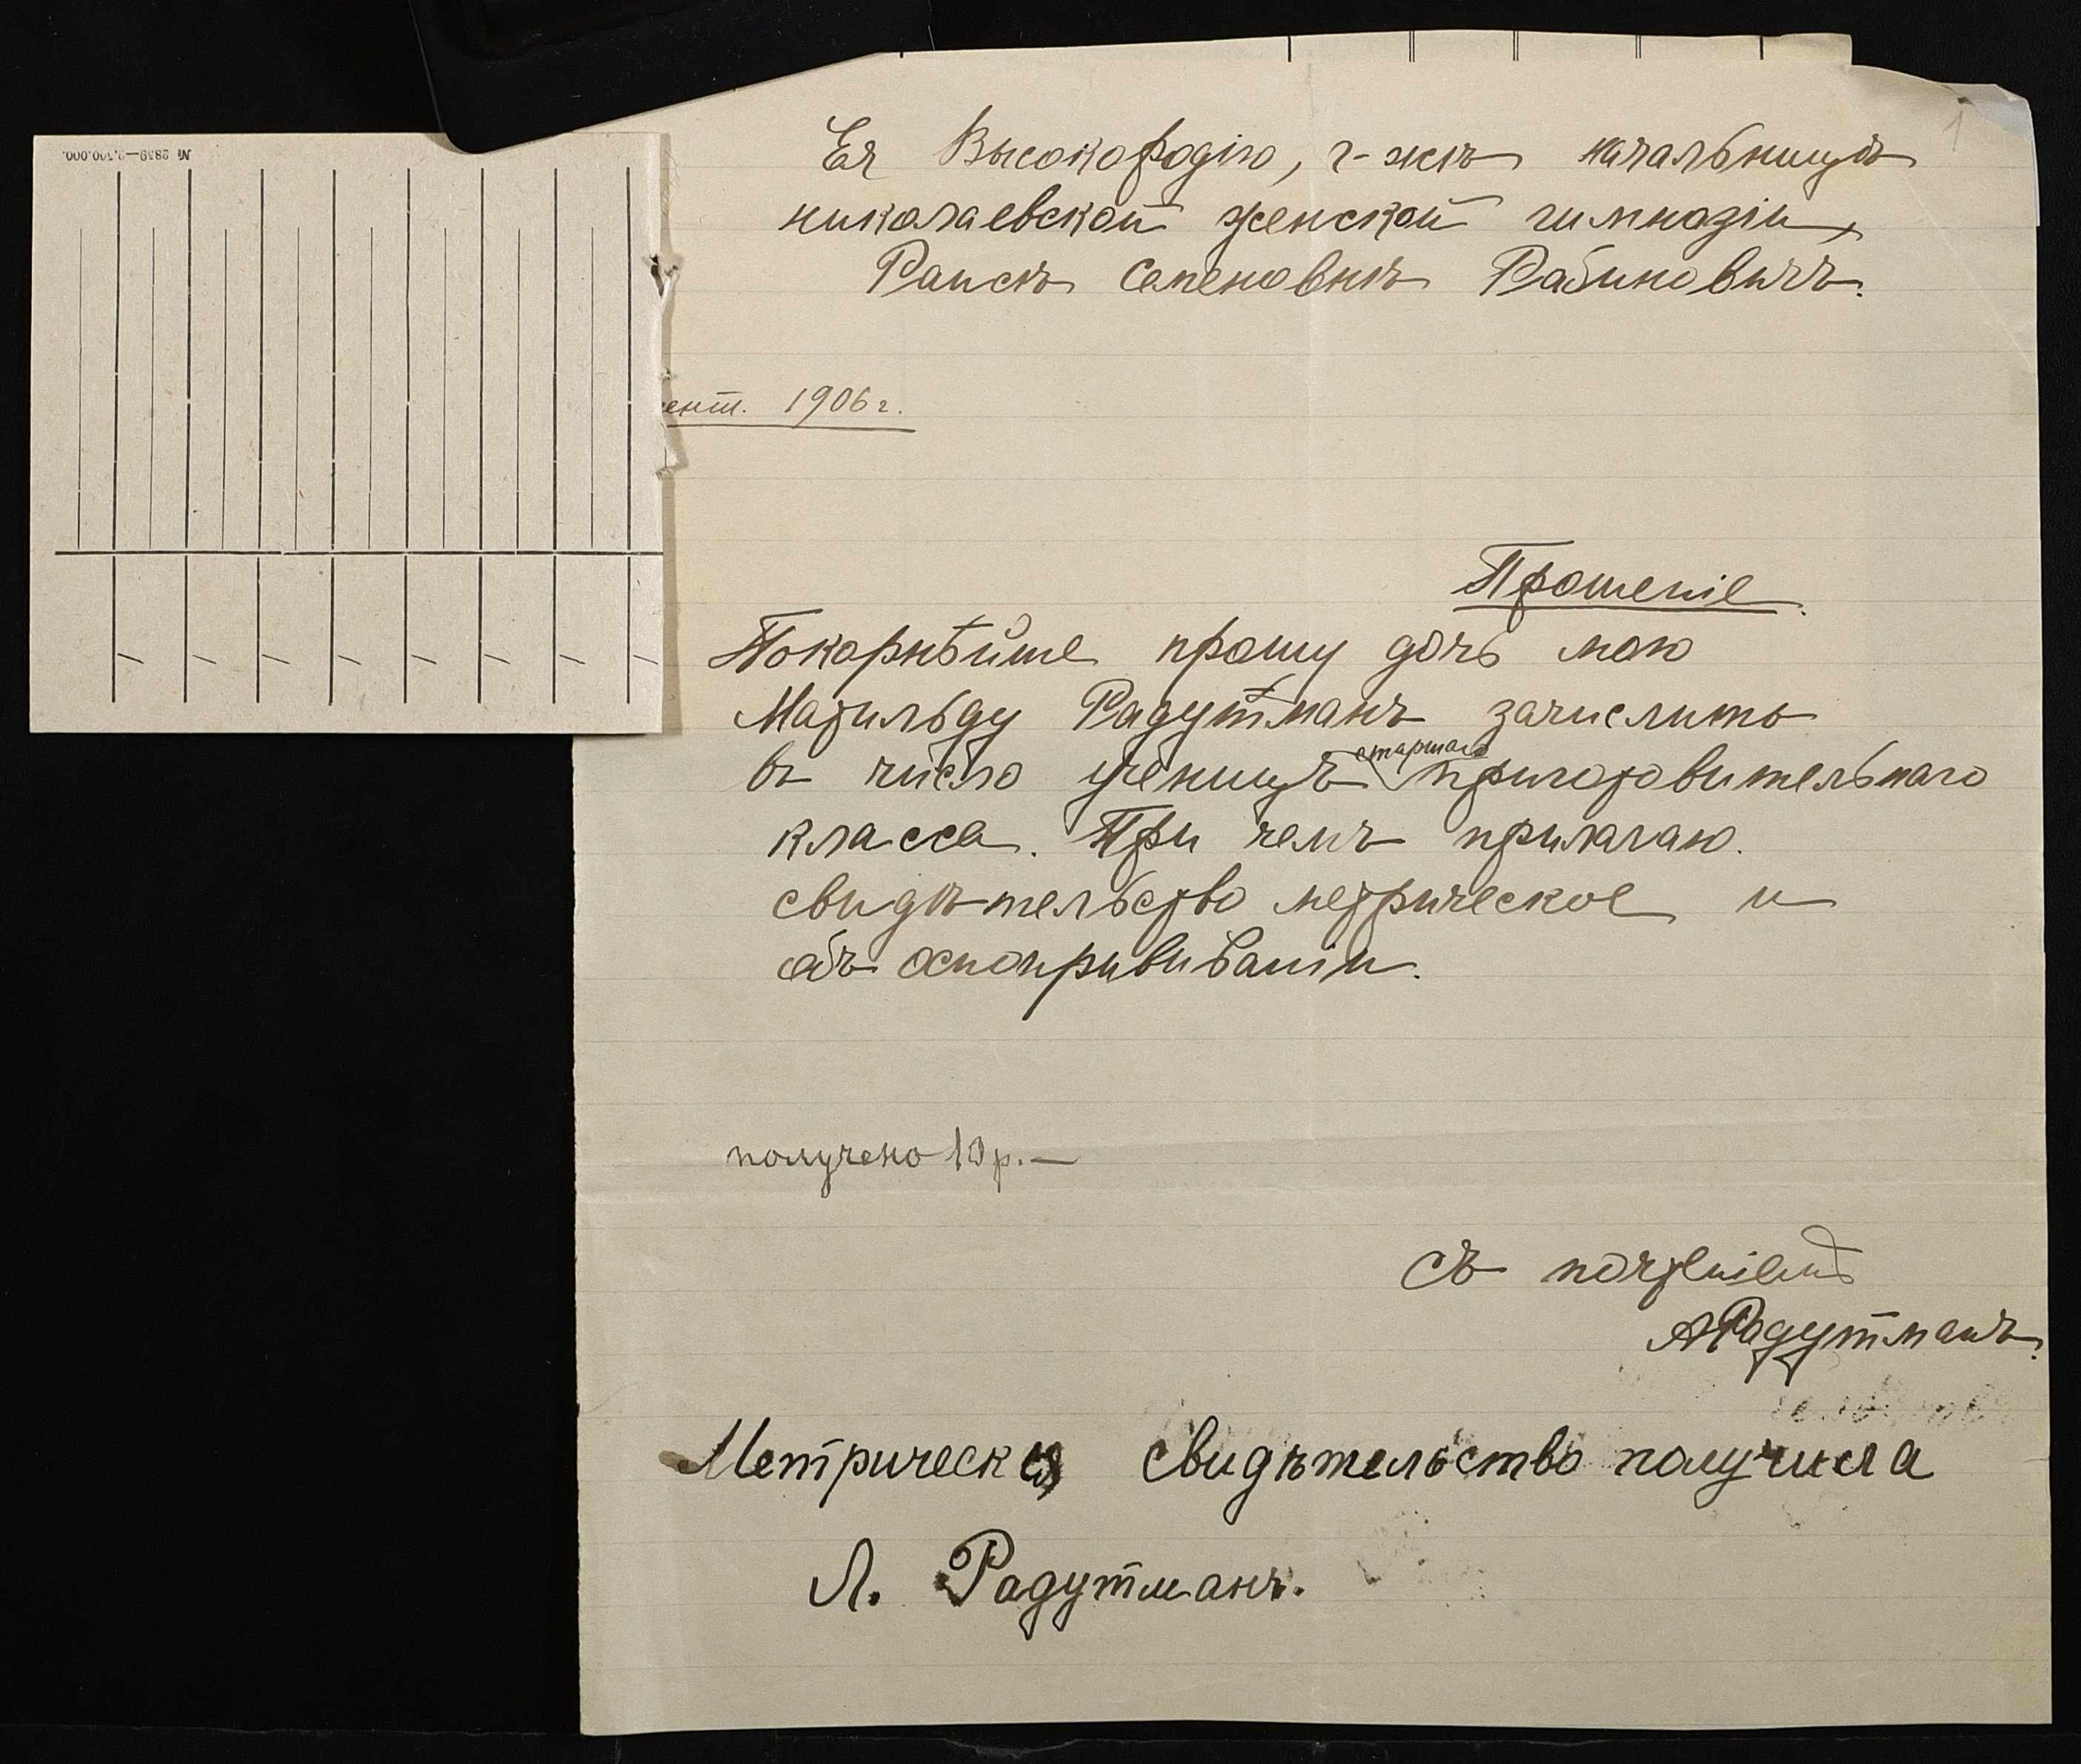 Ея Высокородію, г-жѣ начальницѣ
николаевской женской гимназіи,
Раисѣ Семеновнѣ Рабиновичъ.
сент. 1906 г.
Прошеніе.
Покорнѣйше прошу дочь мою
Матильду Радутманъ зачислить
въ число ученицъ старшаго приготовительнаго
класса. При чемъ прилагаю
свидѣтельство метрическое и
объ оспопрививаніи.
получено 10 р.—
Съ почтеніемъ
А Радутманъ.
Метрическ свидѣтельство получила
Л. Радутманъ.
№ 2859—2.500.000.
1